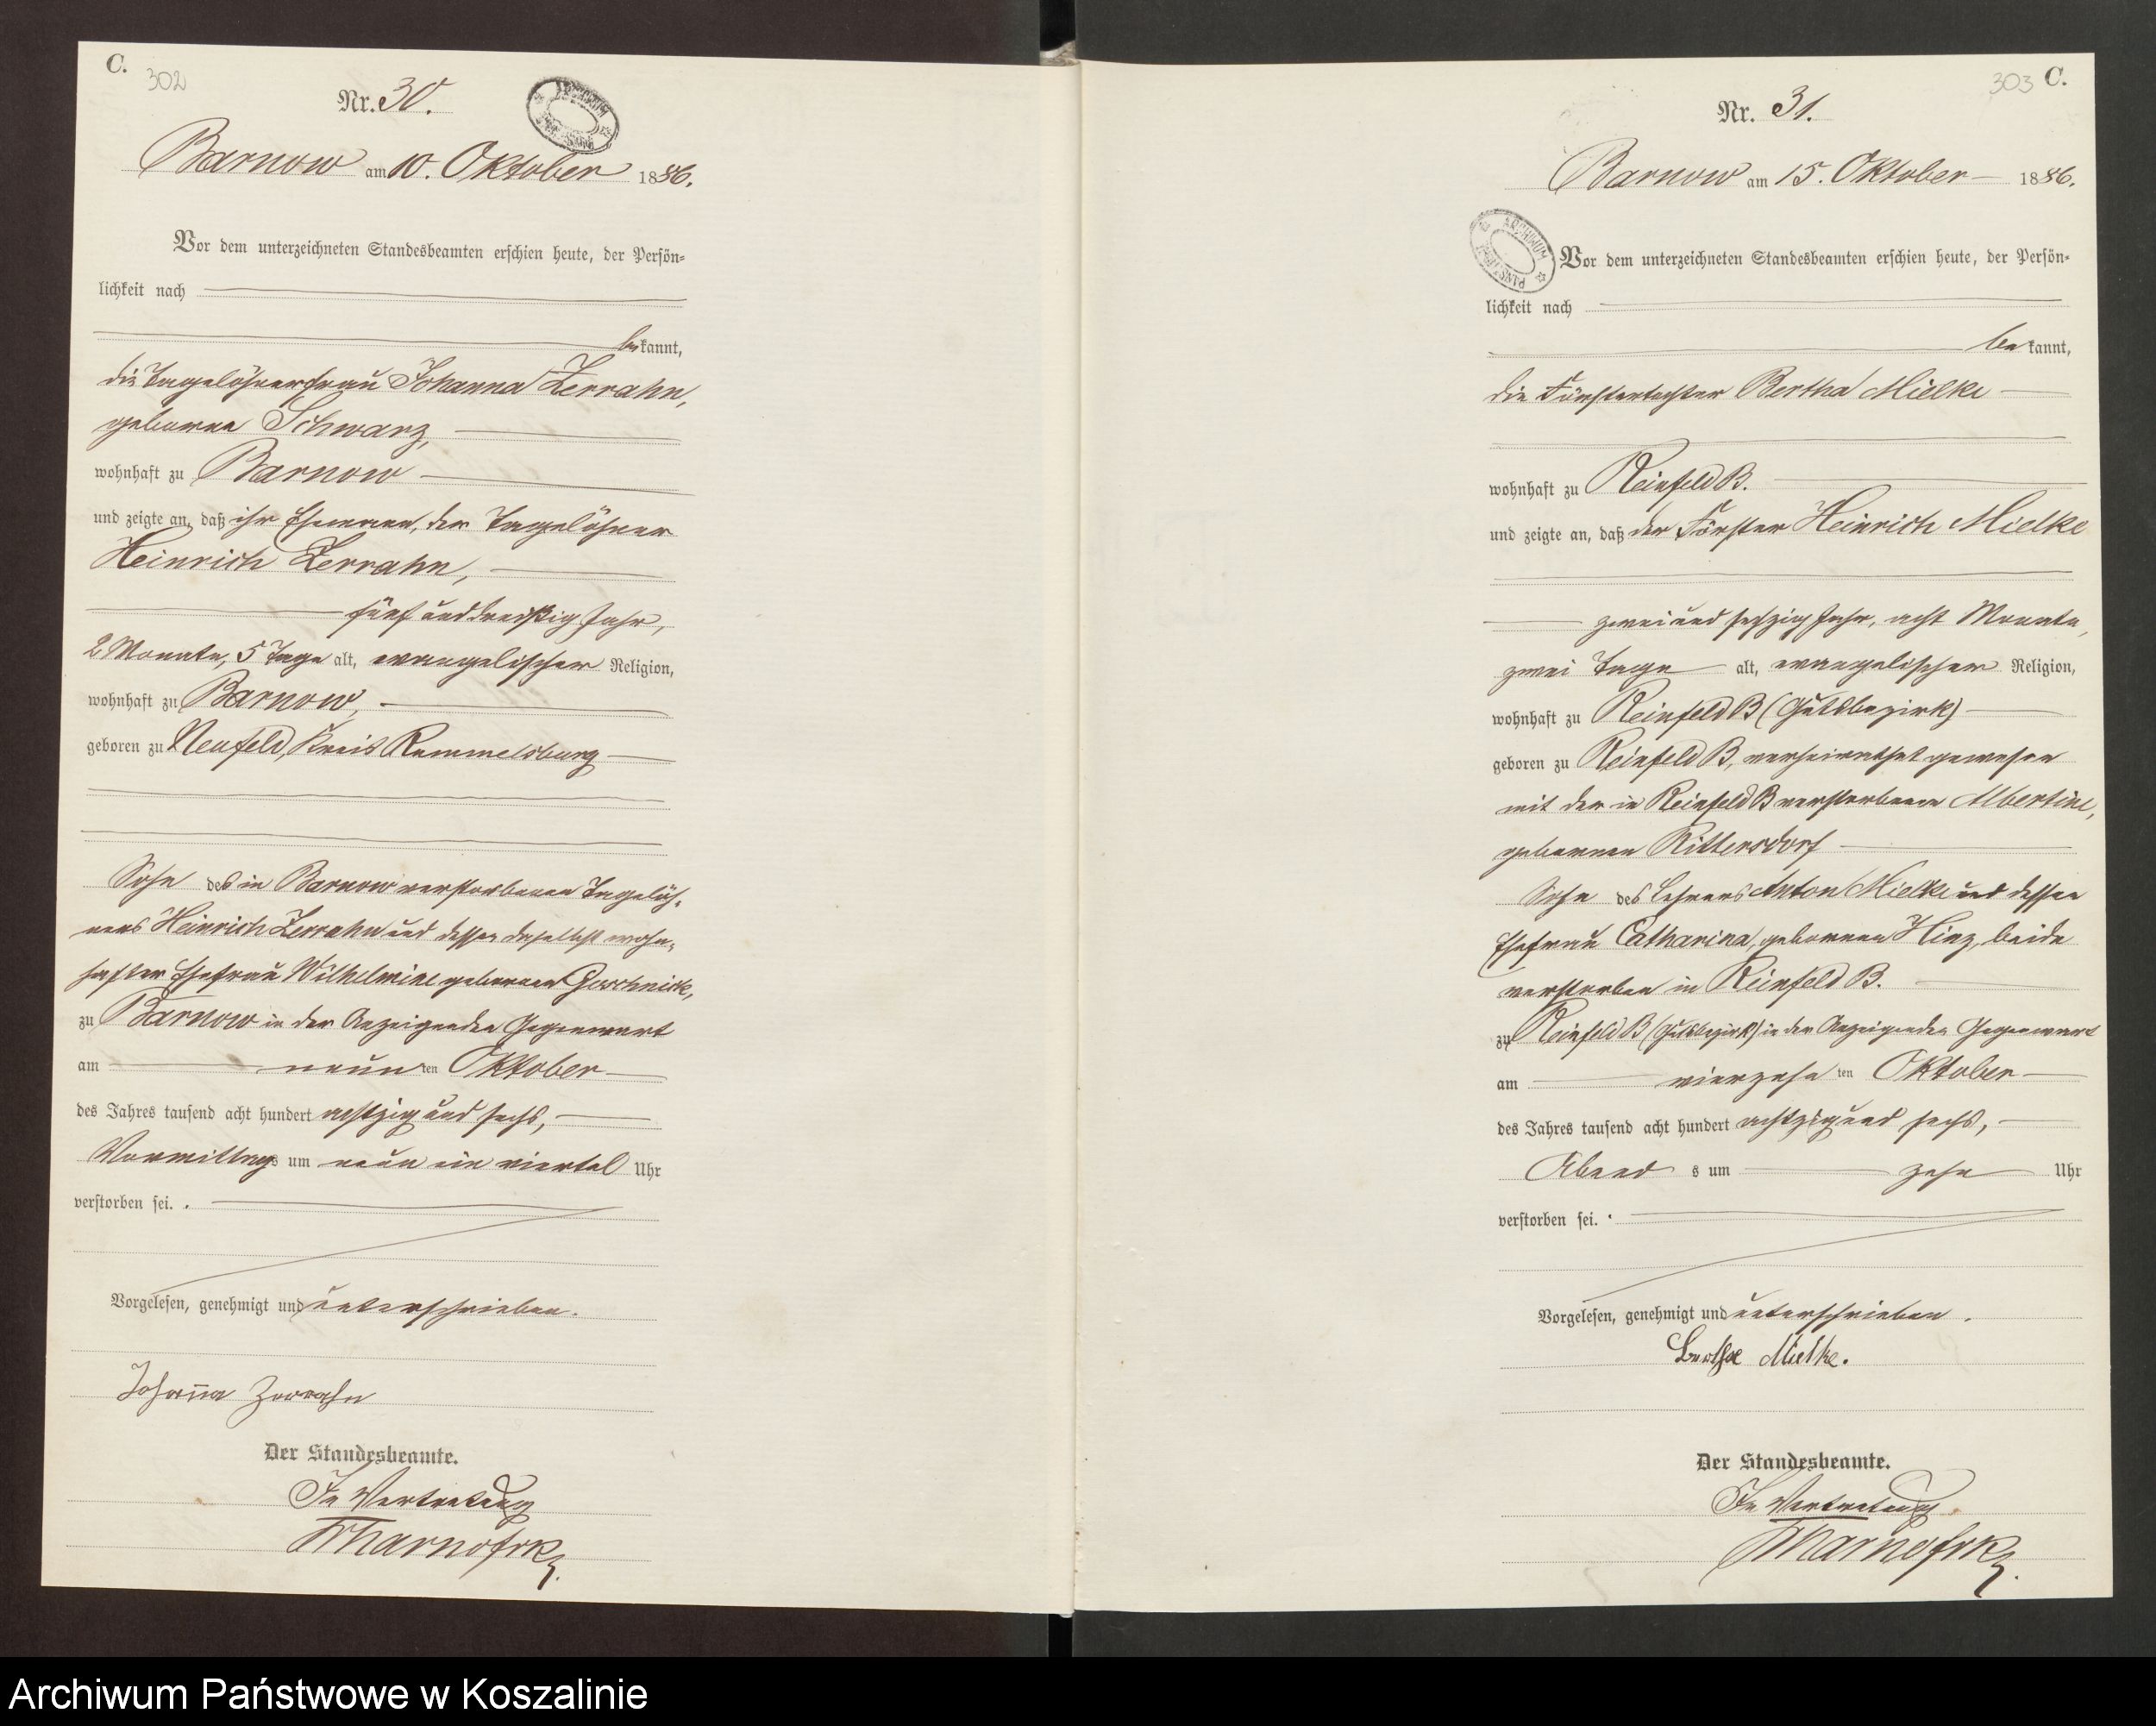 C.
302
Nr. 30.
Barnow am 10. Oktober 1886.
Vor dem unterzeichneten Standesbeamten erschien heute, der Persön-
lichkeit nach
bekannt,
die Tagelöhnerfrau Johanna Zerrahn,
geborne Schwarz,
wohnhaft zu Barnow
und zeigte an, daß ihr Ehemann, der Tagelöhner
Heinrich Zerrahn,
fünf und dreißig Jahr,
2 Monate, 5 Tage alt, evangelischer Religion,
wohnhaft zu Barnow,
geboren zu Neufeld, Kreis Rummelsburg
Sohn des in Barnow verstorbenen Tagelöh-
ners Heinrich Zerrahn und dessen daselbst wohn-
hafter Ehefrau Wilhelmine gebornen
zu Barnow in der Anzeigenden Gegenwart
am neunten Oktober
des Jahres tausend acht hundert achtzig und sechs,
Vormittags um neun ein viertel Uhr
verstorben sei.
Vorgelesen, genehmigt und unterschrieben.
Johanna Zerrahn
Der Standesbeamte.
In Vertretung
303
C.
Nr. 31.
Barnow am 15. Oktober 1886.
ARCHIWUM
Vor dem unterzeichneten Standesbeamten erschien heute, der Persön-
lichkeit nach
bekannt,
die Förstertochter Bertha Mielke
wohnhaft zu Reinfeld B.
und zeigte an, daß der Förster Heinrich Mielke
zwei und sechzig Jahr, acht Monate,
zwei Tage alt, evangelischer Religion,
wohnhaft zu Reinfeld B (Gutsbezirk)
geboren zu Reinfeld B, verheirathet gewesen
mit der in Reinfeld B verstorbenen Albertine,
gebornen Rittersdorf
Sohn des Lehrers Anton Mielke und dessen
Ehefrau Catharina, gebornen Hinz, beide
verstorben in Reinfeld B.
zu Reinfeld B (Gutsbezirk) in der Anzeigenden Gegenwart
am vierzehnten Oktober
des Jahres tausend acht hundert achtzig und sechs,
Abends um zehn Uhr
verstorben sei.
Vorgelesen, genehmigt und unterschrieben.
Bertha Mielke.
Der Standesbeamte.
In Vertretung
Archiwum Państwowe w Koszalinie